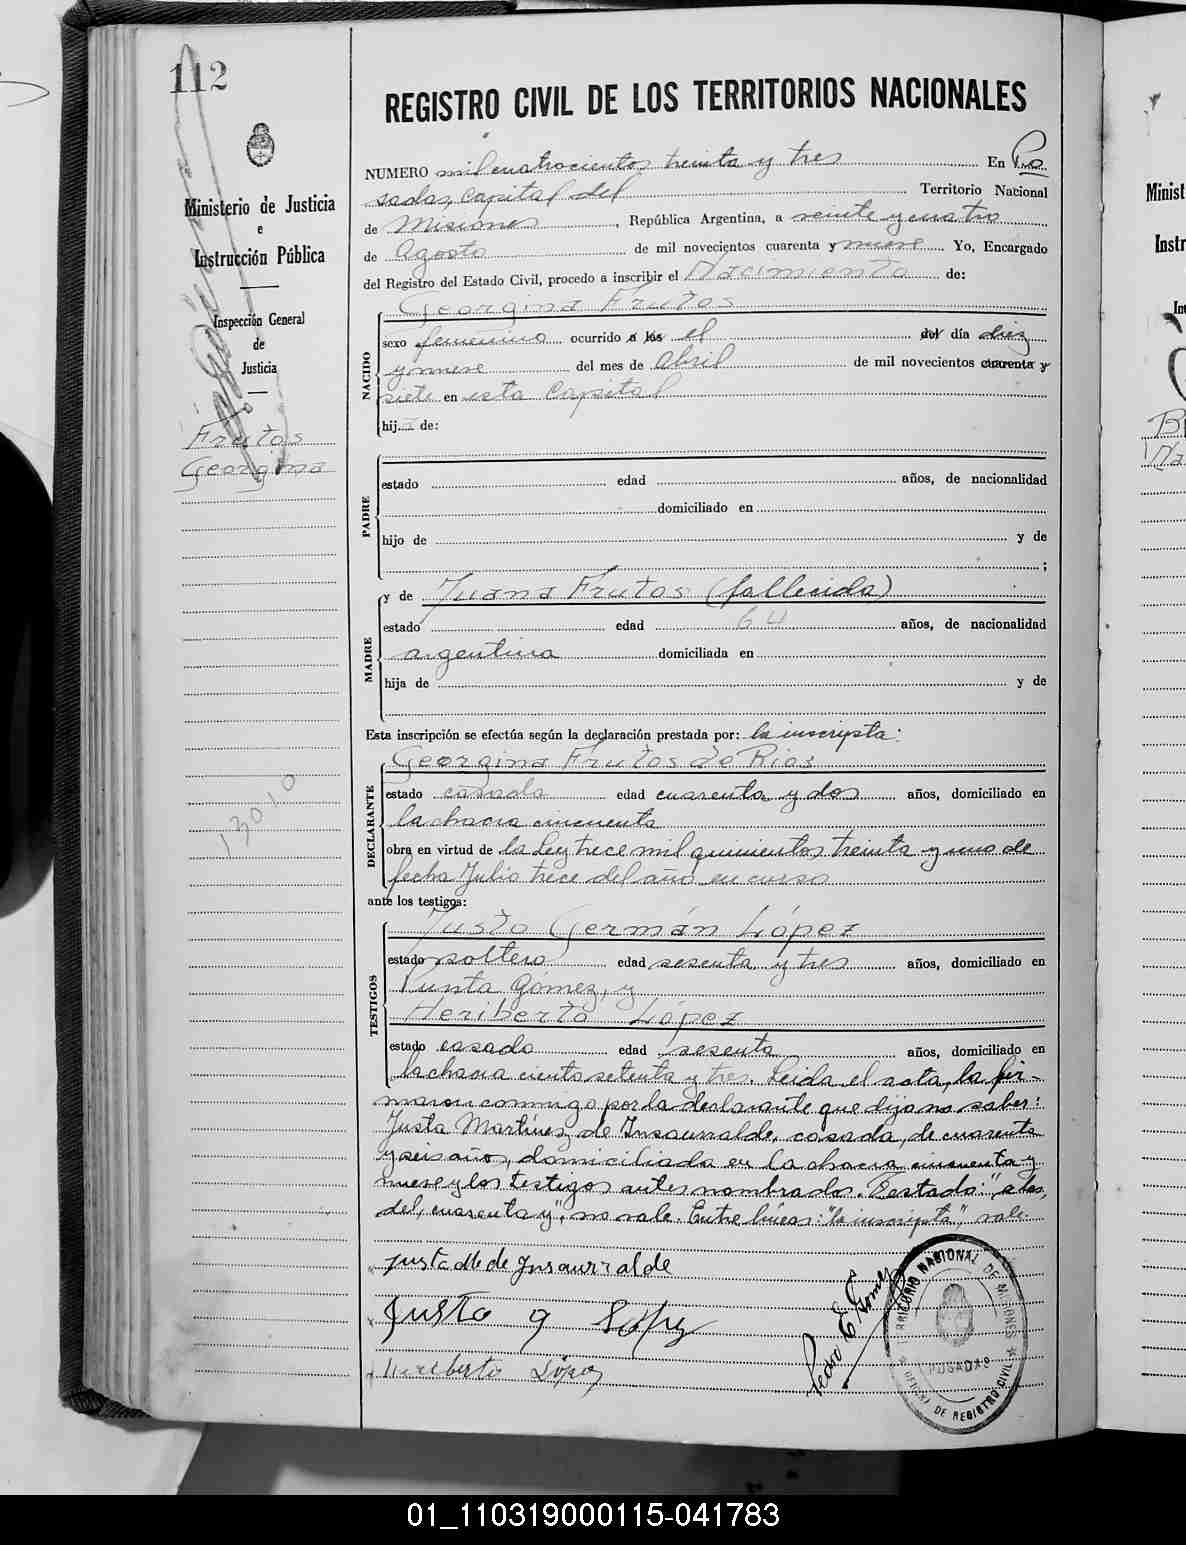 112
REGISTRO CIVIL DE LOS TERRITORIOS NACIONALES
Ministerio de Justicia
e
Instrucción Pública
Inspección General
de
Justicia
Frutos
Georgina
13010
NUMERO mil cuatrocientos treinta y tres En Po
sadas, capital del Territorio Nacional
de Misiones, República Argentina, a veinte y cuatro
de Agosto de mil novecientos cuarenta y nueve Yo, Encargado
del Registro del Estado Civil, procedo a inscribir el Nacimiento de:
Georgina Frutos
NACIDO
sexo femenino ocurrido a las el del día diez
y nueve del mes de abril de mil novecientos cuarenta y
siete en esta Capital
hija de:
PADRE
estado edad años, de nacionalidad
domiciliado en
hijo de y de
;
MADRE
y de Juana Frutos (fallecida)
estado edad 64 años, de nacionalidad
argentina domiciliada en
hija de y de
Esta inscripción se efectúa según la declaración prestada por: la inscripta:
DECLARANTE
Georgina Frutos de Rios
estado casada edad cuarenta y dos años, domiciliado en
la chacra cincuenta
obra en virtud de la Ley trece mil quinientos treinta y uno de
fecha Julio trece del año en curso
ante los testigos:
TESTIGOS
Justo Germán López
estado soltero edad sesenta y tres años, domiciliado en
Punta Gomez, y
Heriberto López
estado casado edad sesenta años, domiciliado en
la chacra ciento setenta y tres. Leida el acta, la fir-
maron conmigo por la declarante que dijo no saber:
Justa Martínez de Insaurralde, casada, de cuarenta
y seis años, domiciliada en la chacra cincuenta y
nueve y los testigos antes nombrados. Testado: "a las,
del, cuarenta y", no vale. Entre líneas: "la inscripta", vale.
Justa M de Insaurralde
Justo G López
Heriberto López
Pedro E Gomez
TERRITORIO NACIONAL DE MISIONES
POSADAS
OFICINA DE REGISTRO CIVIL
Minist
Instr
In
01_110319000115-041783